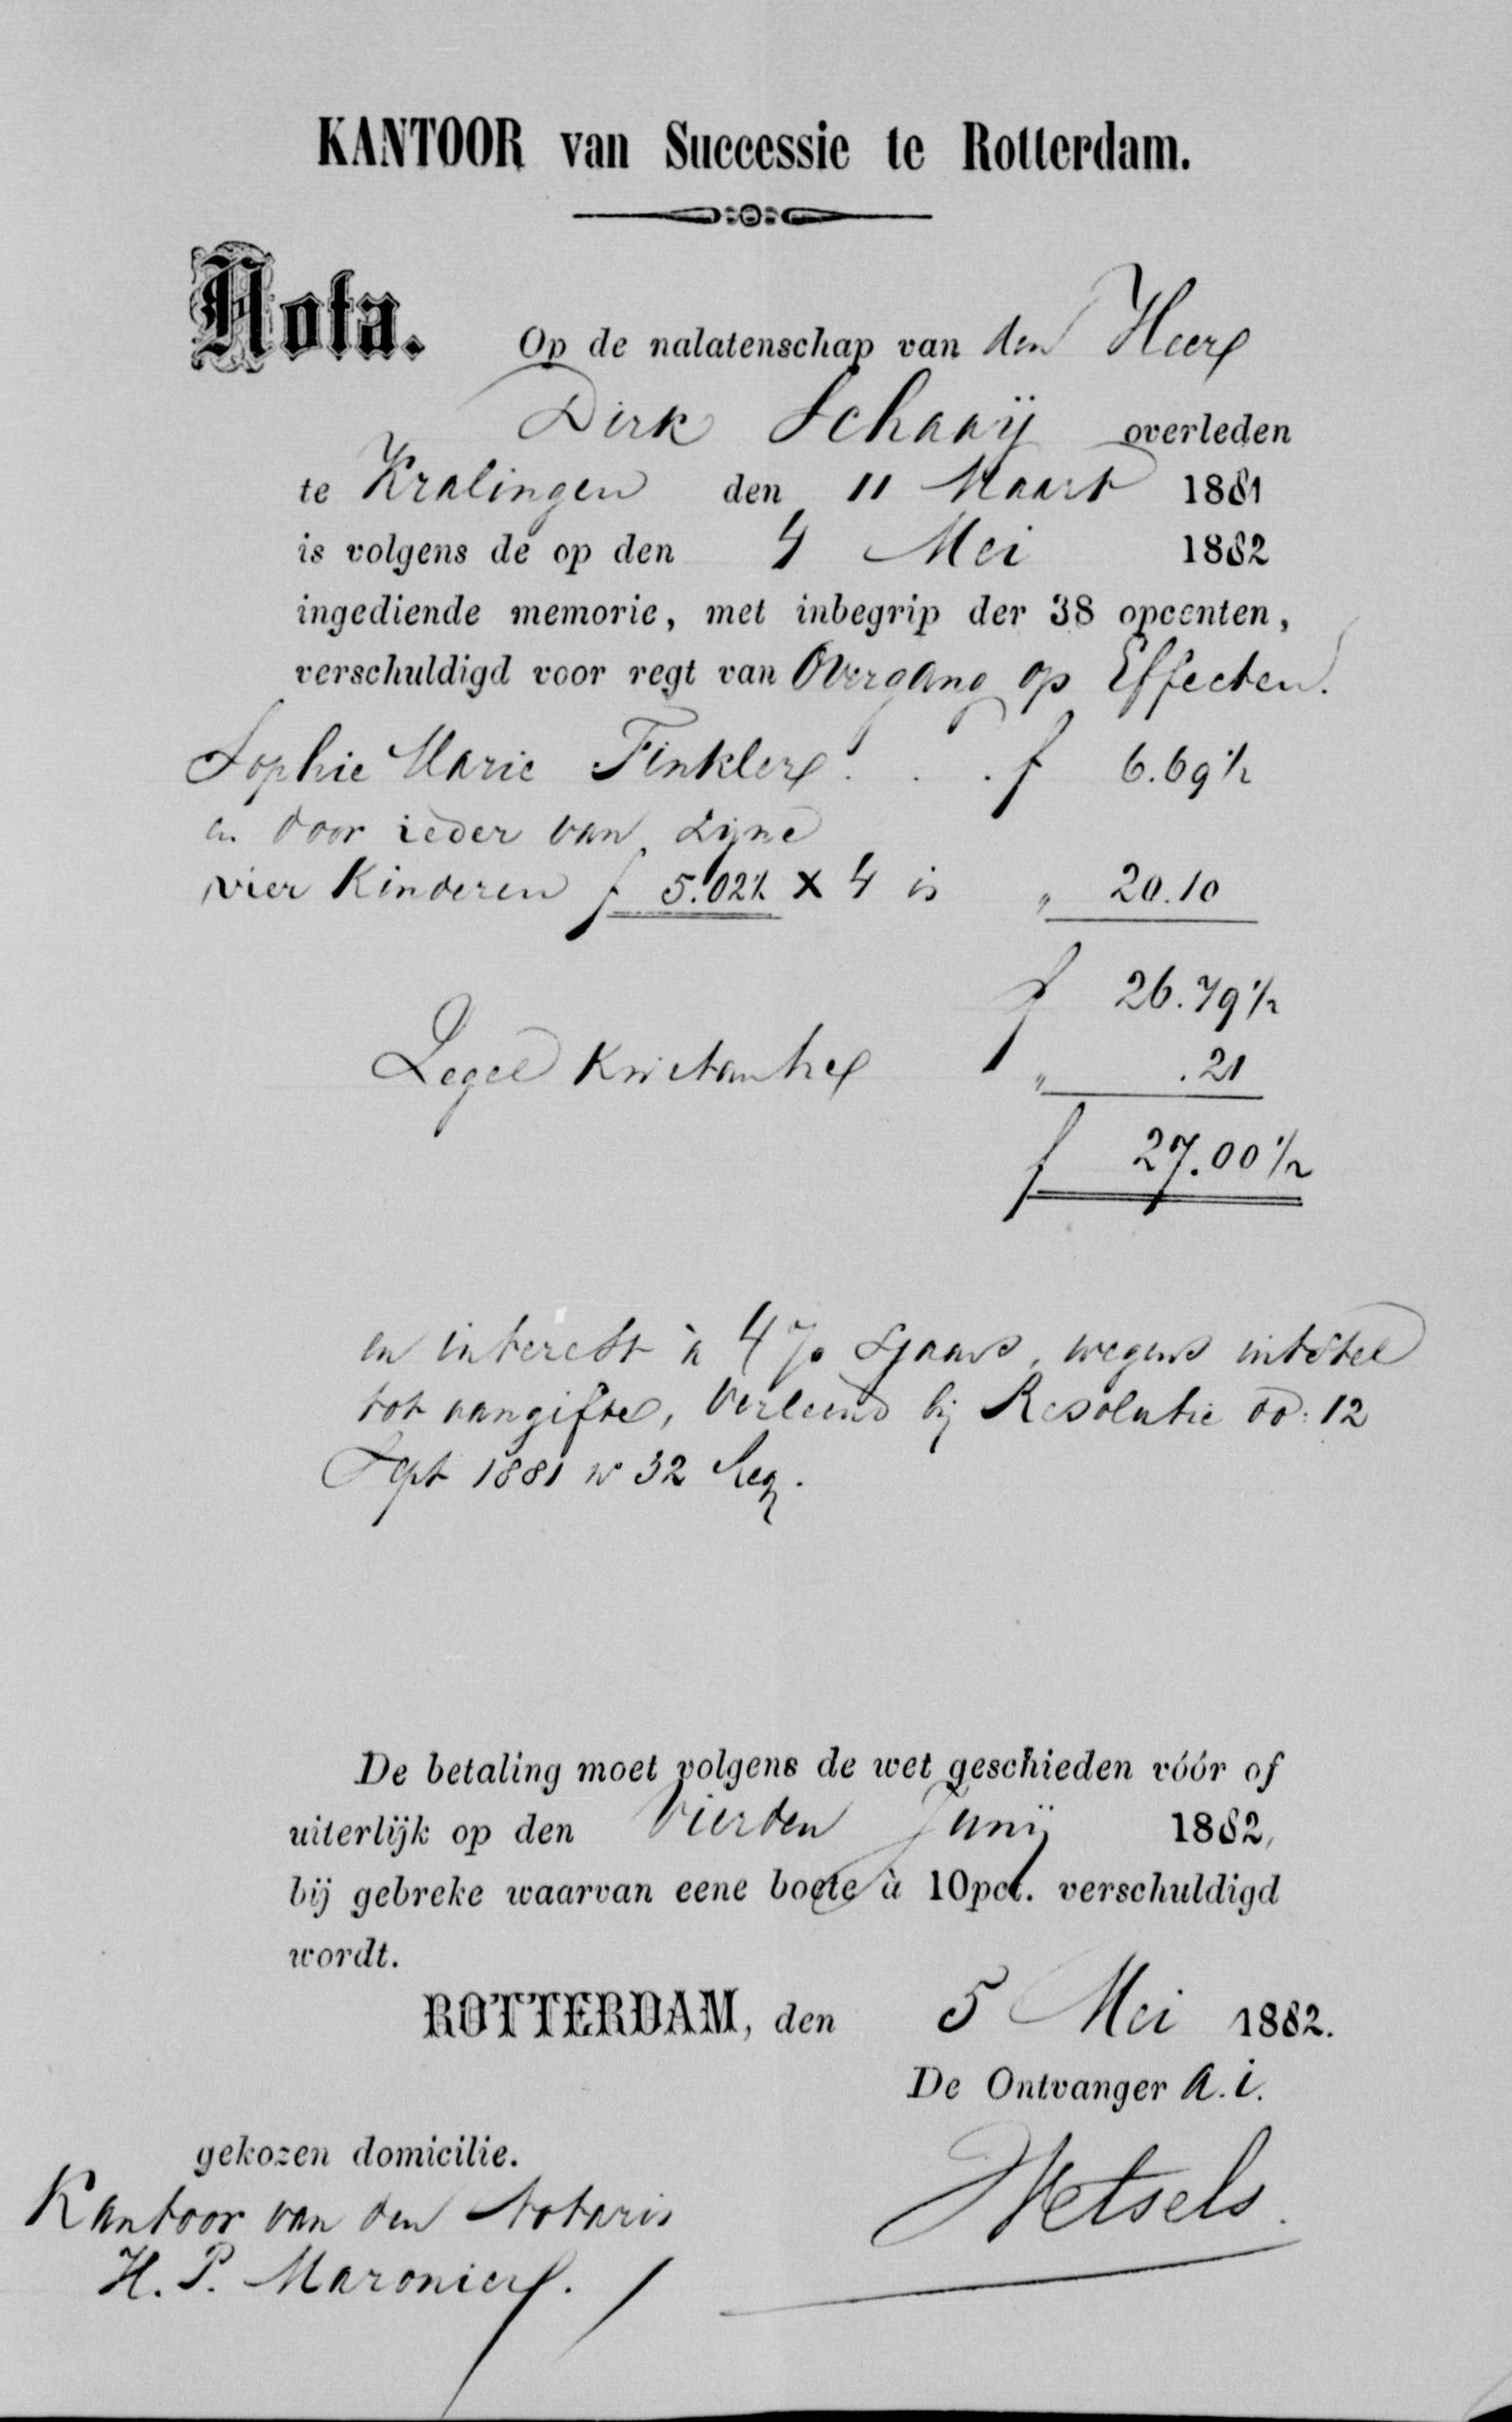 KANTOOR van Successie te Rotterdam.
Nota.
Op de nalatenschap van den Heer
Dirk Schaaij overleden
te Kralingen den 11 Maart 1881
is volgens de op den 4 Mei 1882
ingediende memorie, met inbegrip der 38 opcenten,
verschuldigd voor regt van Overgang op Effecten.
Sophie Marie Finkler . . . f 6.69½
en door ieder van zijne
vier Kinderen f 5.02½ × 4 is " 20.10
f 26.79½
Zegel Kwitantie " .21
f 27.00½
en interest à 4% 'sjaars, wegens uitstel
tot aangifte, verleend bij Resolutie dd: 12
Sept 1881 No 32 Reg.
De betaling moet volgens de wet geschieden vóór of
uiterlijk op den Vierden Junij 1882,
bij gebreke waarvan eene boete à 10pct. verschuldigd
wordt.
ROTTERDAM, den 5 Mei 1882.
De Ontvanger a.i.
Wetsels.
gekozen domicilie.
Kantoor van den Notaris
H. P. Maronier.